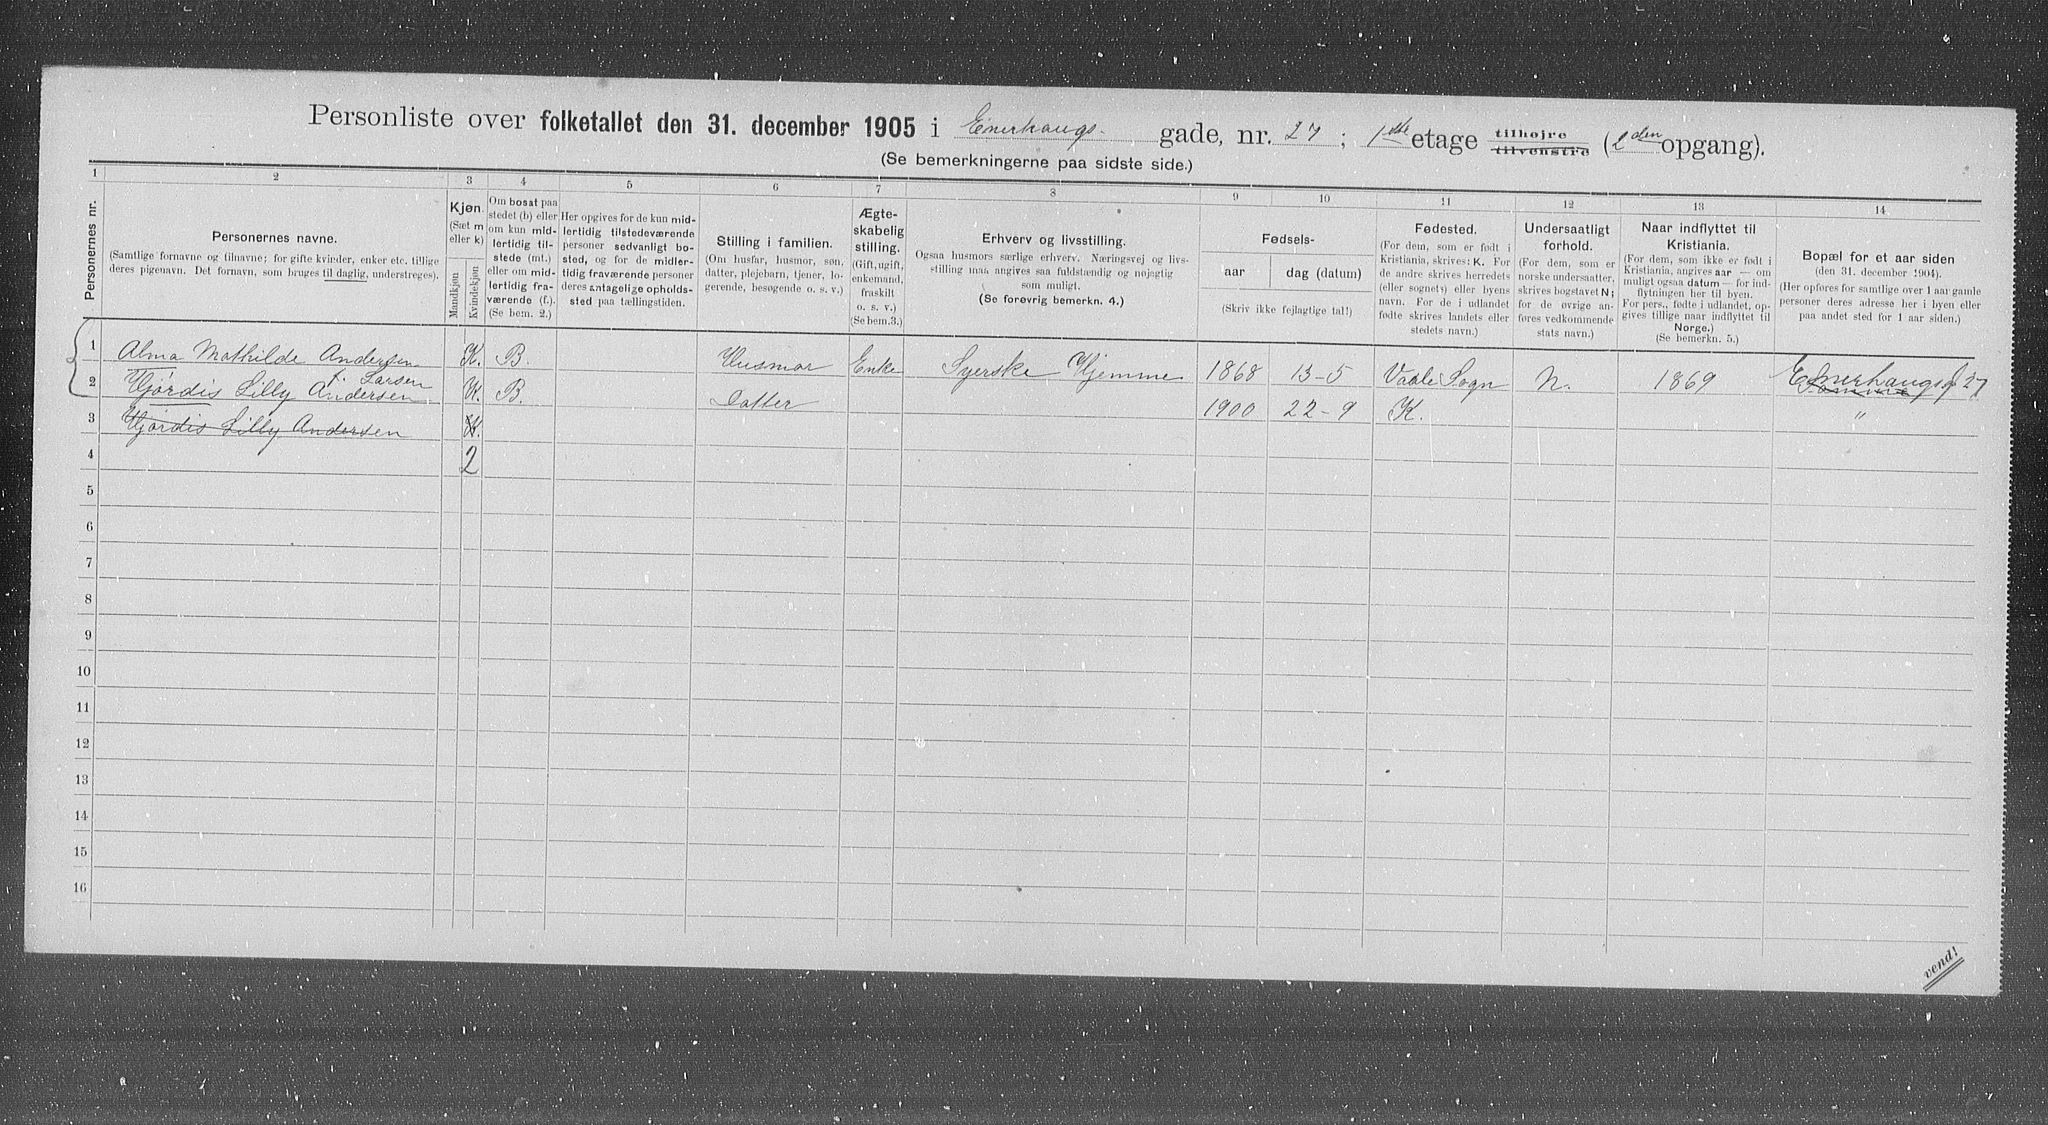 Personliste over folketallet den 31. december 1905 i Enerhaugs- gade, nr. 27; 1ste etage tilhøjre tilvenstre (2den opgang).
(Se bemerkningerne paa sidste side.)
1 2 3 4 5 6 7 8 9 10 11 12 13 14
Personernes nr.
Personernes navne.
(Samtlige fornavne og tilnavne; for gifte kvinder, enker etc. tillige
deres pigenavn. Det fornavn, som bruges til daglig, understreges).
Kjøn.
(Sæt m
eller k)
Mandkjøn
Kvindekjøn
Om bosat paa
stedet (b) eller
om kun mid-
lertidig til-
stede (mt.)
eller om mid-
lertidig fra-
værende (f.).
(Se bem. 2.)
Her opgives for de kun mid-
lertidig tilstedeværende
personer sedvanligt bo-
sted, og for de midler-
tidig fraværende personer
deres antagelige opholds-
sted paa tællingstiden.
Stilling i familien.
(Om husfar, husmor, søn,
datter, plejebarn, tjener, lo-
gerende, besøgende o. s. v.)
Ægte-
skabelig
stilling.
(Gift, ugift,
enkemand,
fraskilt
o. s. v.)
(Se bem.3.)
Erhverv og livsstilling.
Ogsaa husmors særlige erhverv. Næringsvej og livs-
stilling maa angives saa fuldstændig og nøjagtig
som muligt.
(Se forøvrig bemerkn. 4.)
Fødsels-
aar
dag (datum)
(Skriv ikke fejlagtige tal!)
Fødested.
(For dem, som er født i
Kristiania, skrives: K. For
de andre skrives herredets
(eller sognets) eller byens
navn. For de i udlandet
fødte skrives landets eller
stedets navn.)
Undersaatligt
forhold.
(For dem, som er
norske undersaatter,
skrives bogstavet N;
for de øvrige an-
føres vedkommende
stats navn.)
Naar indflyttet til
Kristiania.
(For dem, som ikke er født i
Kristiania, angives aar — om
muligt ogsaa datum — for ind-
flytningen her til byen.
For pers., fødte i udlandet, op-
gives tillige naar indflyttet til
Norge.)
(Se bemerkn. 5.)
Bopæl for et aar siden
(den 31. december 1904).
(Her opføres for samtlige over 1 aar gamle
personer deres adresse her i byen eller
paa andet sted for 1 aar siden.)
1 Alma Mathilde Andersen K. B. Husmor Enke Syerske Hjemme 1868 13-5 Vaale Sogn N. 1869 Enerhaugsg 27
f. Larsen
2 Hjørdis Lilly Andersen K. B. Datter 1900 22-9 K. "
3 Hjørdis Lilly Andersen K.
4 2
5
6
7
8
9
10
11
12
13
14
15
16
vend!